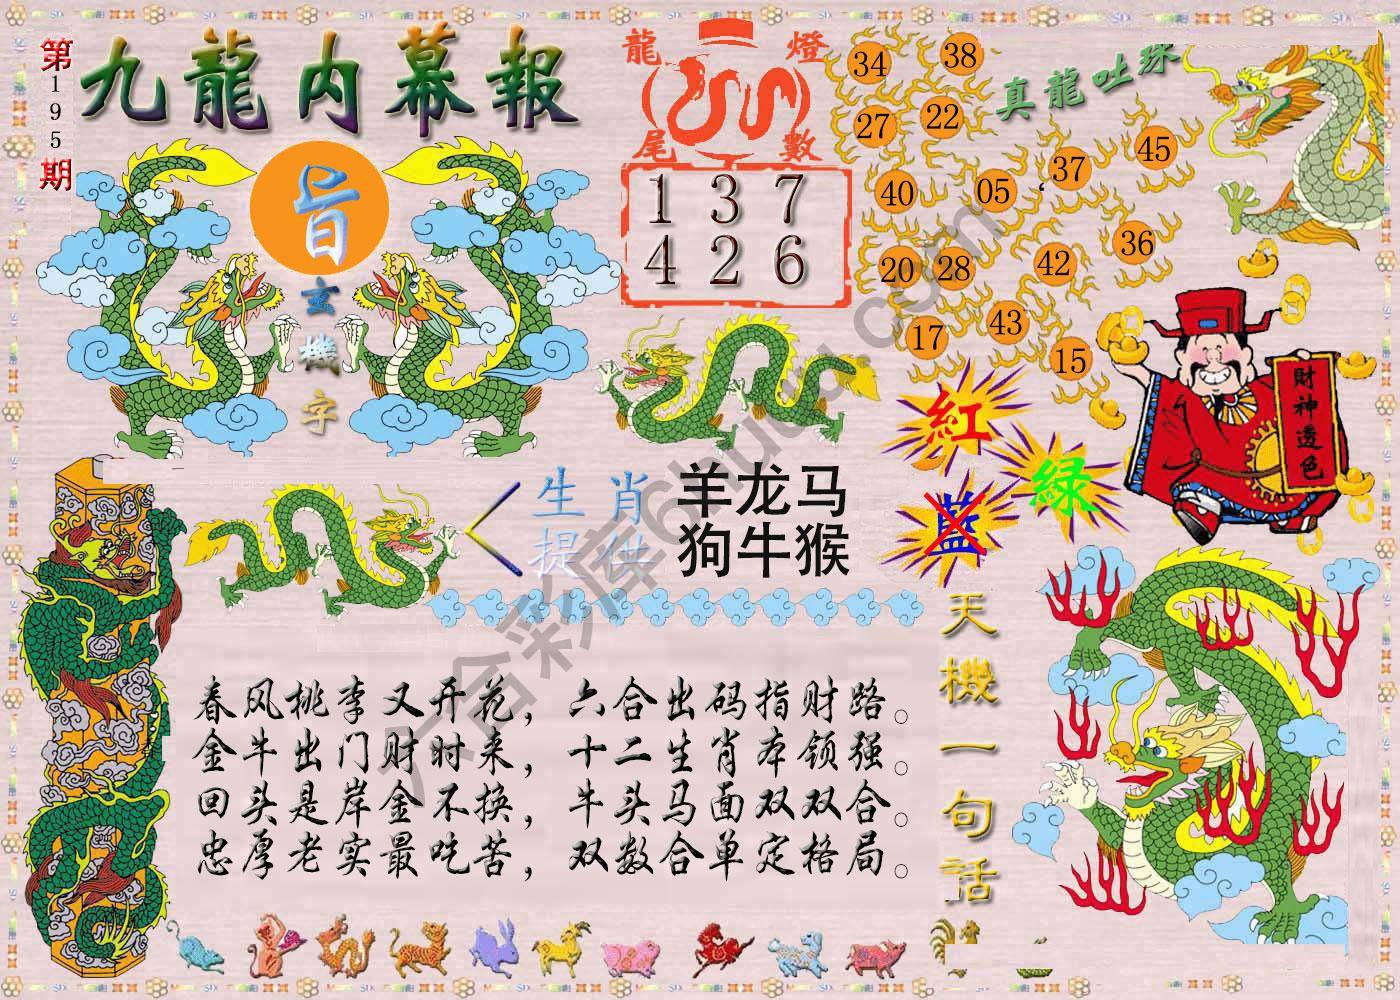 第195期
九龍内幕報
旨
玄機字
龍燈
尾數
1 3 7
4 2 6
真龍吐珠
34
38
27
22
45
37
40
05
36
20
28
42
17
43
15
財神透色
紅
绿
藍
生肖
提供
羊龙马
狗牛猴
天機一句話
春风桃李又开花，六合出码指财路。
金牛出门财时来，十二生肖本领强。
回头是岸金不换，牛头马面双双合。
忠厚老实最吃苦，双数合单定格局。